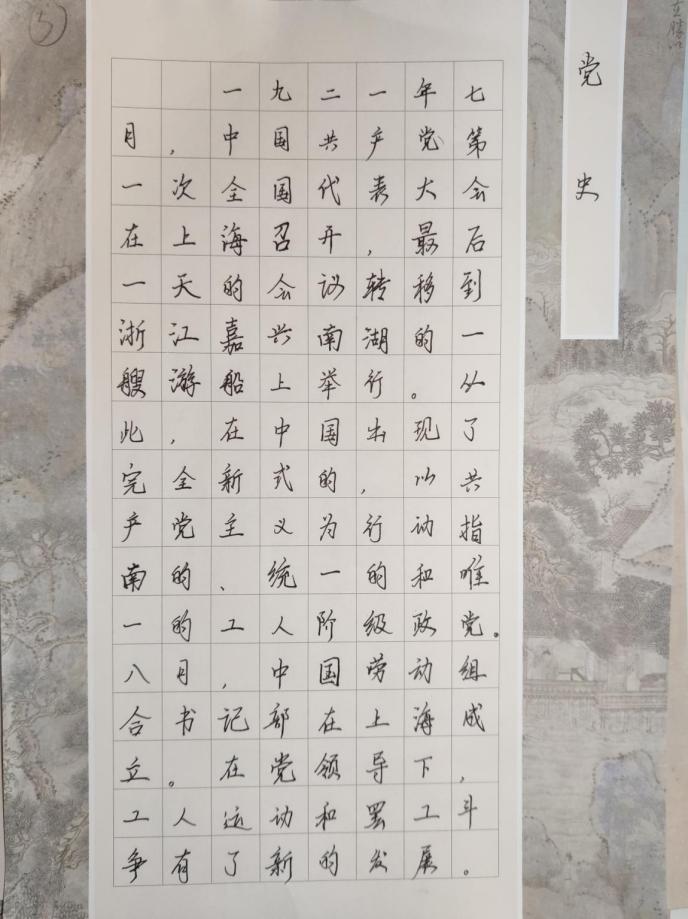 党史
一九二一年七
月，中国共产党第
一次全国代表大会
在上海召开，最后
一天的会议转移到
浙江嘉兴南湖的一
艘游船上举行。从
此，在中国出现了
完全新式的，以共
产党主义为行动指
南的、统一的和唯
一的工人阶级政党。
八月，中国劳动组
合书记部在上海成
立。在党领导下，
工人运动和罢工斗
争有了新的发展。